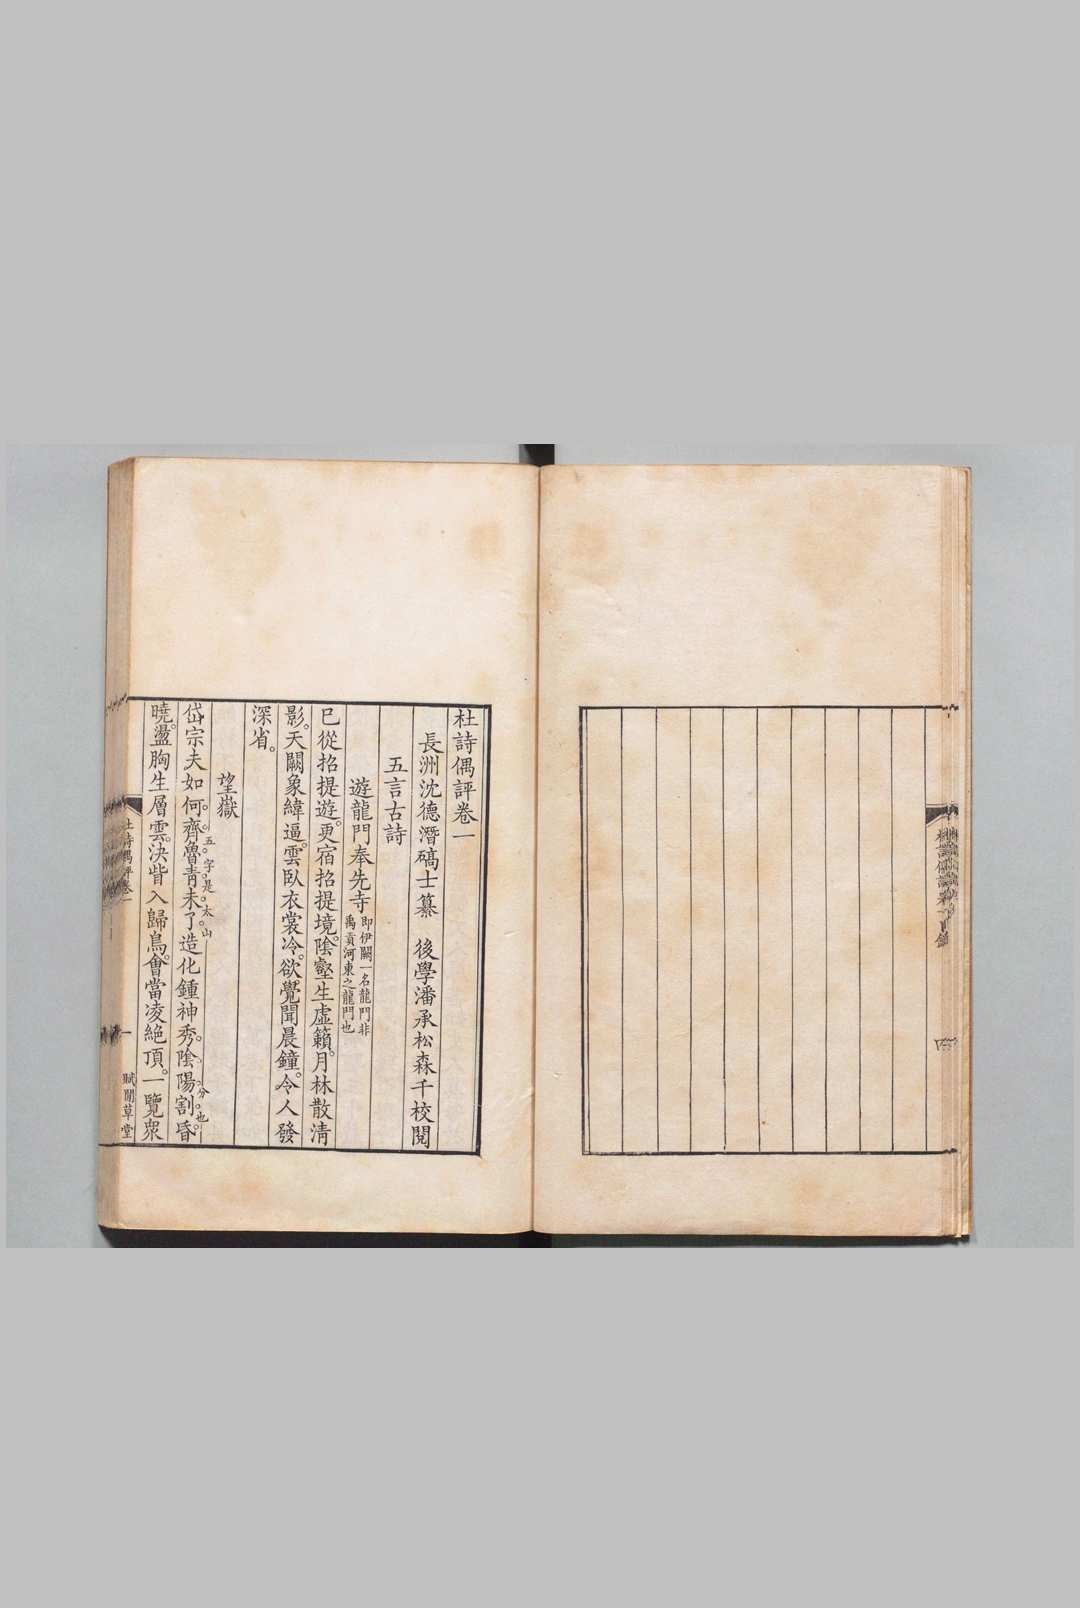 杜詩偶評卷一
長洲沈德潛碻士纂　後學潘承松森千校閱
五言古詩
遊龍門奉先寺即伊闕一名龍門非禹貢河東之龍門也
已從招提遊。更宿招提境。陰壑生虛籟。月林散清
影。天闕象緯逼。雲臥衣裳冷。欲覺聞晨鐘。令人發
深省。
望嶽
岱宗夫如何。齊魯青未了造化鍾神秀。陰陽割昏
五字是太山
分也
曉。盪胸生層雲。決眥入歸鳥。會當凌絕頂。一覽衆
杜詩偶評卷一
一
賦閒草堂